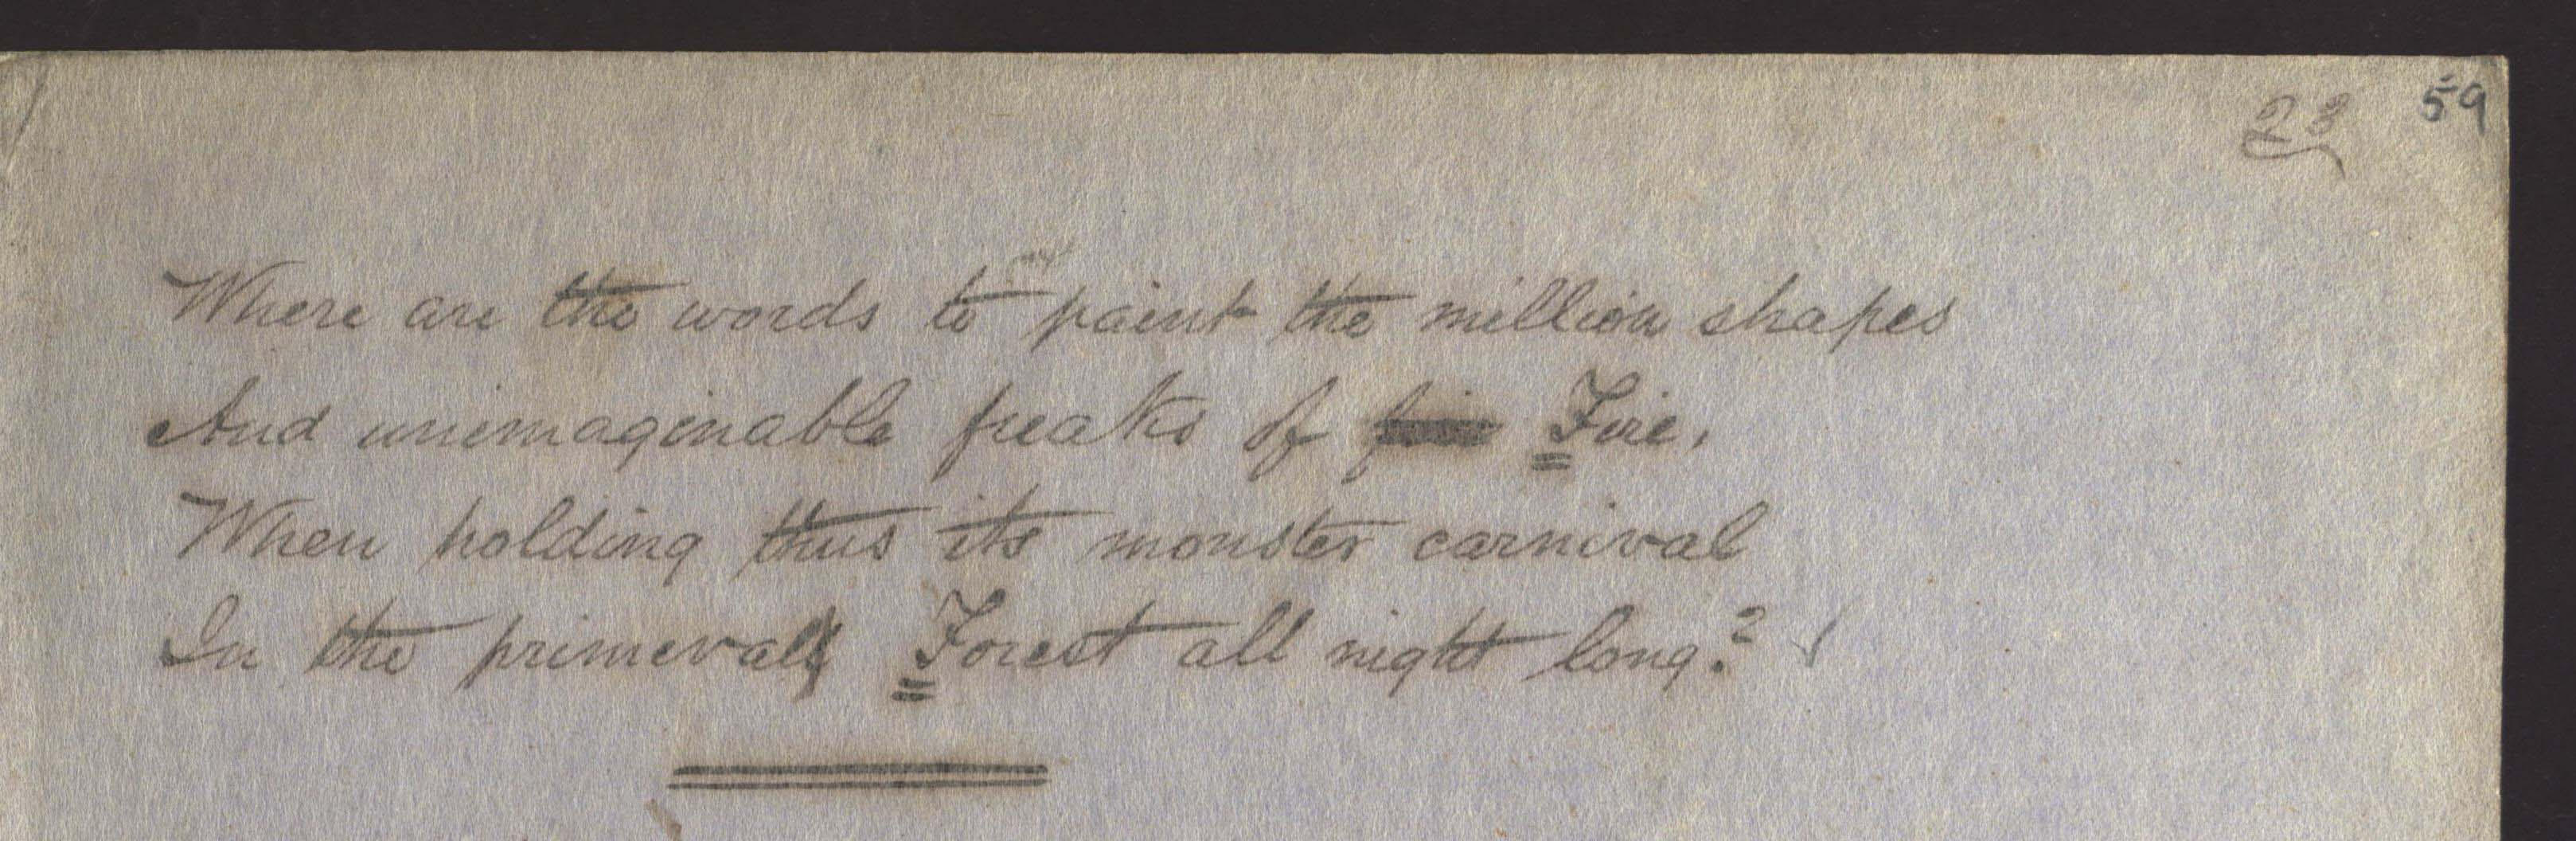 59
23
Where are the words to paint the million shapes
And unimaginable freaks of Fire,
When holding thus its monster carnival
In the primeval Forest all night long?